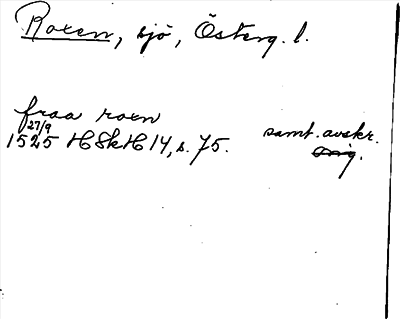 Roxen, sjö, Österg. l.
fraa roen
27/9
1525 HSkH 14, s. 75. samt. avskr.
orig.